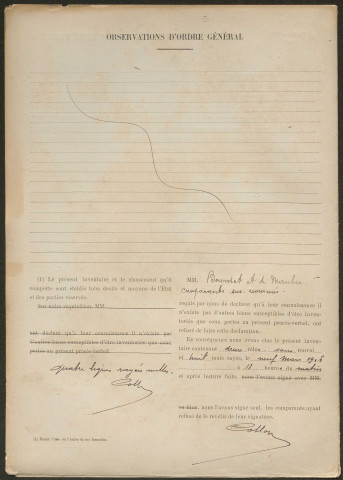 OBSERVATIONS D'ORDRE GÉNÉRAL
(1) Le présent inventaire et le classement qu'il
comporte sont établis tous droits et moyens de l'État
et des parties réservés.
Sur notre réquisition, MM.
ont déclaré qu'à leur connaissance il n'existe pas
d'autres biens susceptibles d'être inventoriés que ceux
portés au présent procès-verbal.
quatre lignes rayées nulles.
(1) Rayer l'une de l'autre de ces formules.
MM. et de
comparants sus-nommés.
requis par nous de déclarer qu'à leur connaissance il
n'existe pas d'autres biens susceptibles d'être inven-
toriés que ceux portés au présent procès-verbal, ont
refusé de faire cette déclaration.
En conséquence nous avons clos le présent inven-
taire contenant deux rôles sans renvoi
et huit mots rayés, le neuf mars 1906
à 11 heures du matin
et après lecture faite, nous l'avons signé avec MM.
ou bien, nous l'avons signé seul, les comparants ayant
refusé de le revêtir de leur signature.